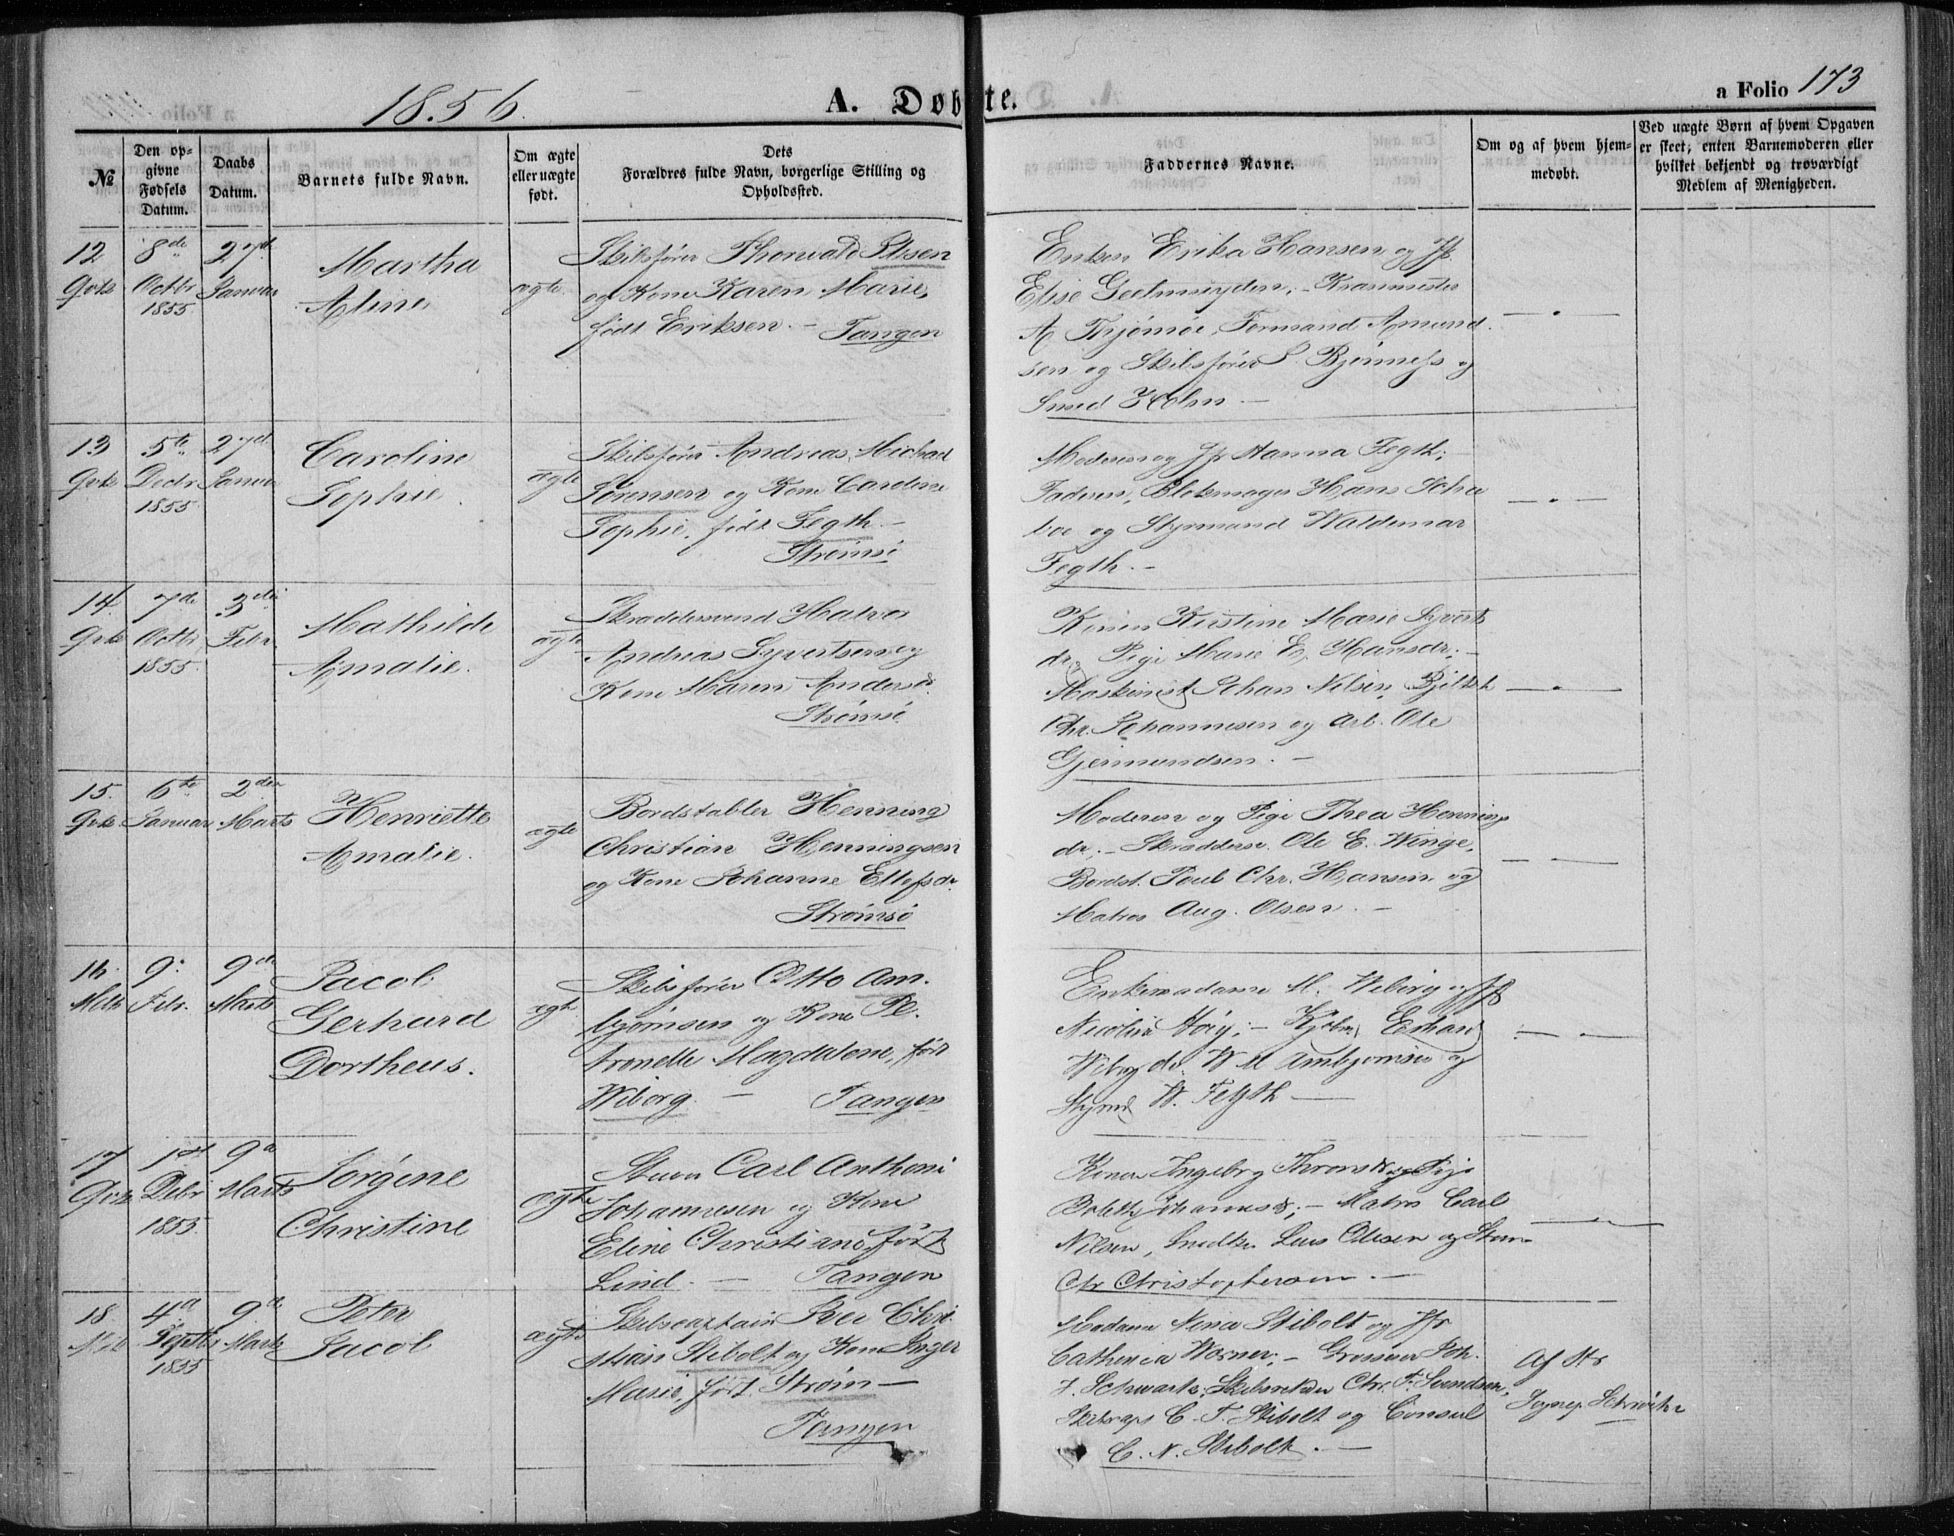 1856.
A. Døbte.
a Folio 173
№
Den op-
givne
Fødsels
Datum.
Daabs
Datum.
Barnets fulde Navn.
Om ægte
eller uægte
født.
Dets
Forældres fulde Navn, borgerlige Stilling og
Opholdssted.
Faddernes Navne.
Om og af hvem hjem-
medøbt.
Ved uægte Børn af hvem Opgaven
er skeet; enten Barnemoderen eller
hvilket bekjendt og troværdigt
Medlem af Menigheden.
12
8de
Octbr
1855
27d
Januar
Martha
Aline
ægte
Skibsfører Thorvald
og Kone Karen Marie,
født Eriksen. — Tangen
Enken Erika Hansen og Jfr
Elise Geelmuyden; —
A Thjømøe, Formand Amund-
sen og Skibsfører S. Bjønness og
Smed Holm —
13
5te
Decbr
1855
27d
Januar
Caroline
Sophie
ægte
Skibsfører Andreas Michael
Sørensen og Kone Caroline
Sophie, født Fegth. —
Strømsø
Moderen og Jfr Hanna Fegth; —
Faderen, Blokmager Hans
og Styrmand Waldemar
Fegth. —
14
7de
Octbr
1855
3die
Febr
Mathilde
Amalie.
ægte
Skræddersvend
Andreas Syvertsen og
Kone Maren Andersd.
Strømsø
Konen Kirstine Marie Syverts
dr, Pige Marie E. Hansdr; —
Maskinist Johan Nilsen,
Chr. Johannesen og Arb. Ole
Gjermundsen. —
15.
6te
Januar
2den
Marts
Henriette
Amalie.
ægte
Bordstabler Henning
Christian Henningsen
og Kone Johanne Ellefsdr
Strømsø
Moderen og Pige Thea Hennings
dr; — Skrædders. Ole E. Winge,
Bordst. Poul Chr. Hansen og
Matros Aug. Olsen. —
16.
9.
Febr.
9de
Marts
Jacob
Gerhard
Dortheus.
ægte
Skibsfører Otto Am-
bjørnsen og Kone Pe-
tronelle Magdalene, født
Wiborg. — Tangen
Enkemadame M. Wiborg og Jfr
Nicoline Høeg; —
Wiborg, do. W M Ambjørnsen og
Styrmd W. Fegth —
17
1ste
Debr
1855.
9d
Marts
Jørgine
Christine
ægte
Carl Anthoni
Johannesen og Kone
Eline Christiane født
Lind. — Tangen
Kone Ingeborg Thronsd og Pige
Johannesd; — Matros Carl
Nilsen, Snedker Lars Olesen og
Chr Christophersen. —
18.
4d
Septbr
1855
9de
Marts
Peter
Jacob
ægte
Skibscaptain Iver Chri-
stian Stibolt og Kone Inger
Marie, født Strøm —
Tangen
Madame Nina Stibolt og Jfr
Cathinca Werner; — Grosserer Joh.
F. Schwartz, Skibsreder Chr. F. Svendsen,
Skibscapt C. F. Stibolt og Consul
C. N. Stibolt. —
Af Hr
Sognep.